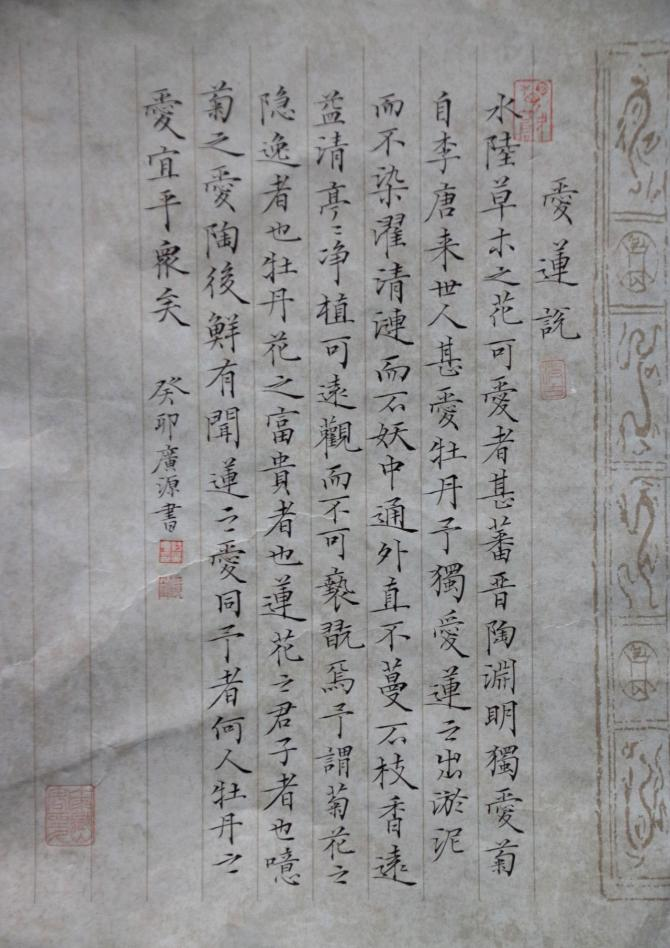 愛蓮説
水陸草木之花可愛者甚蕃晋陶淵明獨愛菊
自李唐来世人甚愛牡丹予獨愛蓮之出淤泥
而不染濯清漣而不妖中通外直不蔓不枝香遠
益清亭亭净植可遠觀而不可褻翫焉予謂菊花之
隐逸者也牡丹花之富貴者也蓮花之君子者也噫
菊之愛陶後鮮有聞蓮之愛同予者何人牡丹之
愛宜乎衆矣
癸卯廣源書